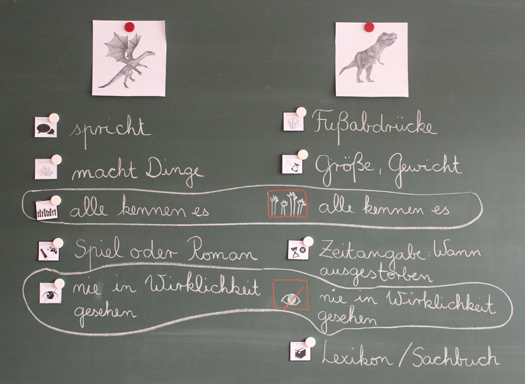 spricht
macht Dinge
alle kennen es
Spiel oder Roman
nie in Wirklichkeit
gesehen
Fußabdrücke
Größe, Gewicht
alle kennen es
Zeitangabe: Wann
ausgestorben
nie in Wirklichkeit
gesehen
Lexikon / Sachbuch